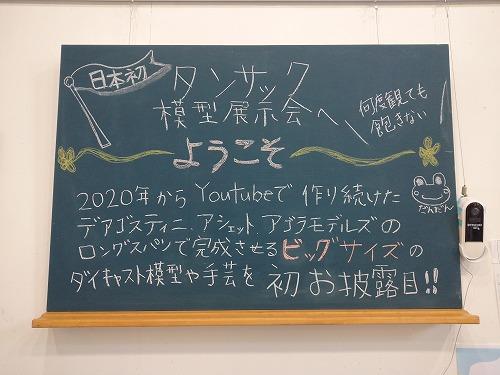 日本初
タンサック
模型展示会へ
何度観ても
飽きない
ようこそ
だんだん
2020年からYoutubeで作り続けた
デアゴスティーニ、アシェット、アゴラモデルズの
ロングスパンで完成させるビッグサイズの
ダイキャスト模型や手芸を初お披露目!!